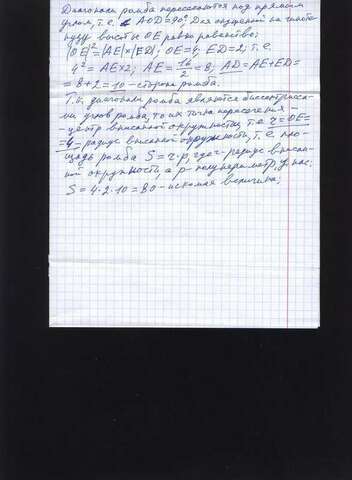 Диагонали ромба пересекаются под прямым
углом, т.е. ∠AOD=90°. Для опущенной на гипоте-
нузу высоты OE равно равенство:
|OE|²=|AE|×|ED|; OE=4; ED=2; т.е.
4² = AE×2; AE = 16/2 = 8; AD=AE+ED=
= 8+2 = 10 - сторона ромба.
Т.к. диагонали ромба являются биссектриса-
ми углов ромба, то их точка пересечения -
- центр вписанной окружности, т.е. r=OE=
=4 - радиус вписанной окружности, т.е. пло-
щадь ромба S = r·p, где r - радиус вписан-
ной окружности, а p - полупериметр, у нас:
S = 4·2·10 = 80 - искомая величина;